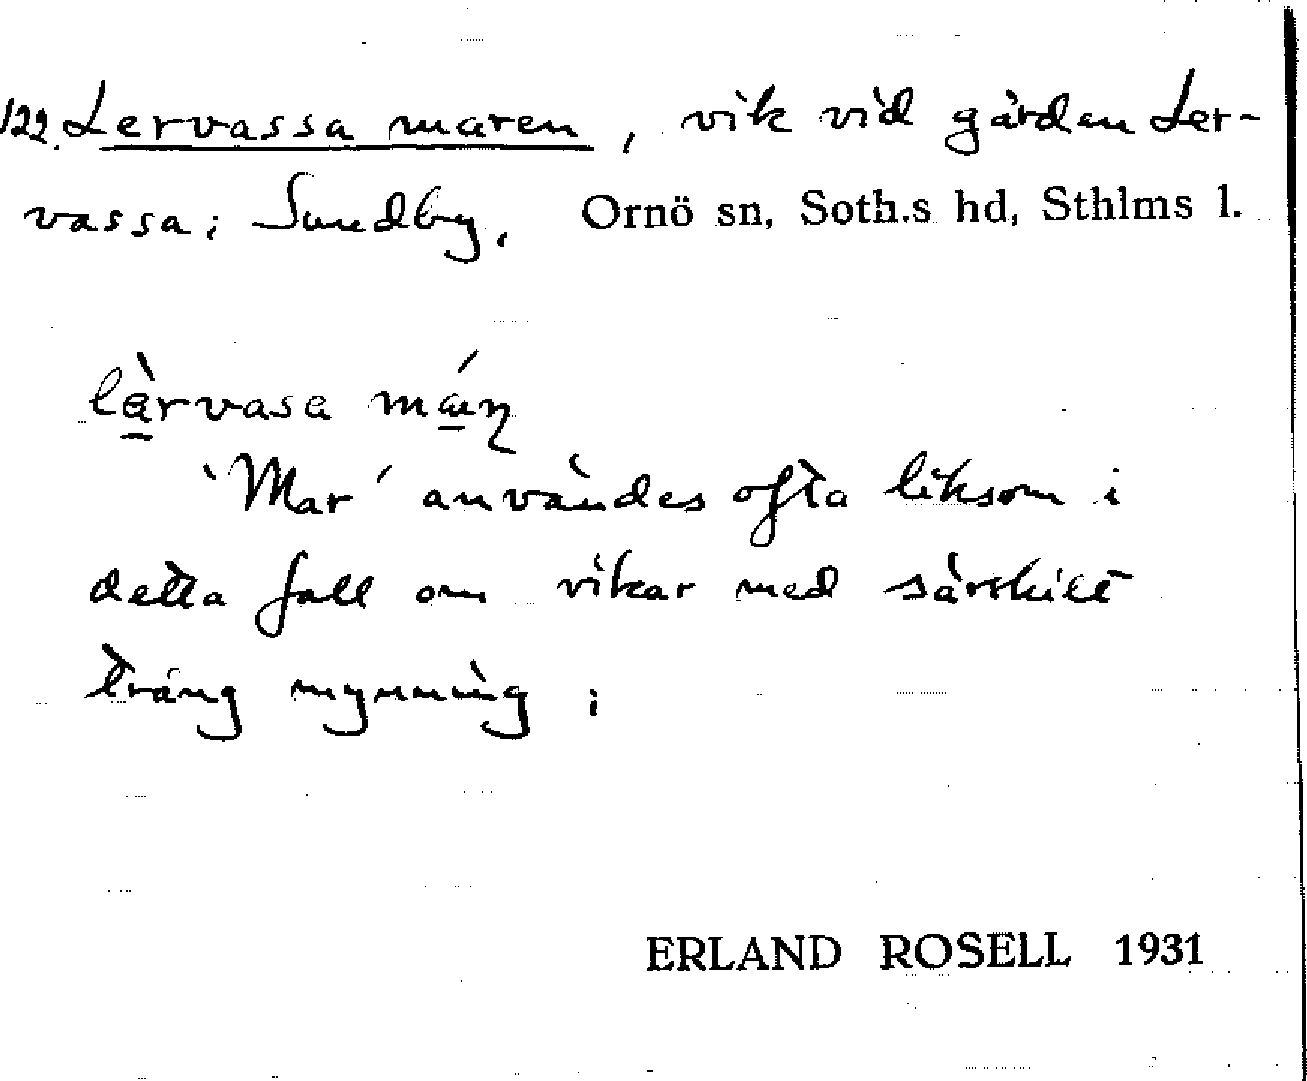 122. Lervassa maren, vik vid gården Ler-
vassa; Sundby. Ornö sn, Soth.s hd, Sthlms l.
lèrvasa
'Mar' användes ofta liksom i
detta fall om vikar med särskilt
trång mynning;
ERLAND ROSELL 1931